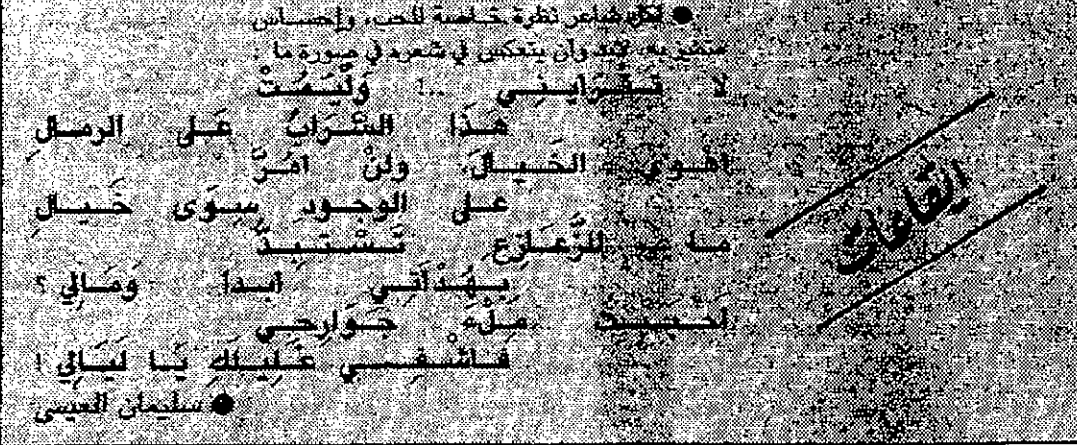 ● لكل شاعر نظرة خاصة للحب، وإحساس
متميز به، لابد وان ينعكس في شعره في صورة ما :
لا تـقـرأيـنـي ..! وَلْـيَـمُـتْ
هـذا السَّـرَابُ عَـلى الرمـالِ
اهْـوى الخَـيـالَ، ولنْ امُـرَّ
عـلى الوجـودِ سِـوَى خَـيـالِ
مـا للزَّعَـازِعِ تَـسْـتَـبِـدُّ
بِـهَـدْأتـي ابـدا وَمَـالي ؟
احـبـبـت مِـلْءَ جَـوَارحـي
فـاشْـفـي غَـلِيـلَكِ يَـا لَيَـالي !
● سليمان العيسى
ايقاعات